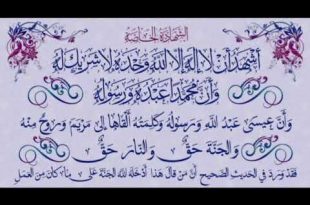 الشهادة الخاصة
أَشْهَدُ أَنْ لَا إِلَهَ إِلَّا اللهُ وَحْدَهُ لَا شَرِيكَ لَهُ
وَأَنَّ مُحَمَّدًا عَبْدُهُ وَرَسُولُهُ
وَأَنَّ عِيسَى عَبْدُ اللهِ وَرَسُولُهُ وَكَلِمَتُهُ أَلْقَاهَا إِلَى مَرْيَمَ وَرُوحٌ مِنْهُ
وَالْجَنَّةُ حَقٌّ وَالنَّارُ حَقٌّ
فَقَدْ وَرَدَ فِي الْحَدِيثِ الصَّحِيحِ أَنَّ مَنْ قَالَ هَذَا أَدْخَلَهُ اللهُ الْجَنَّةَ عَلَى مَا كَانَ مِنَ الْعَمَلِ